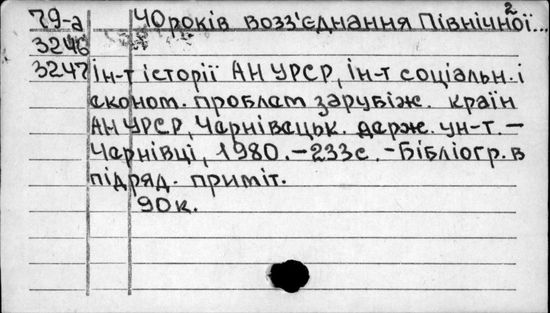 79-а 40 років возз'єднання Північної... 2
3246
3247 Ін-т історії АН УРСР, Ін-т соціальн. і
економ. проблем зарубіж. країн
АН УРСР, Чернівецьк. держ. ун-т. –
Чернівці, 1980. – 233с. – Бібліогр. в
підряд. приміт.
90к.